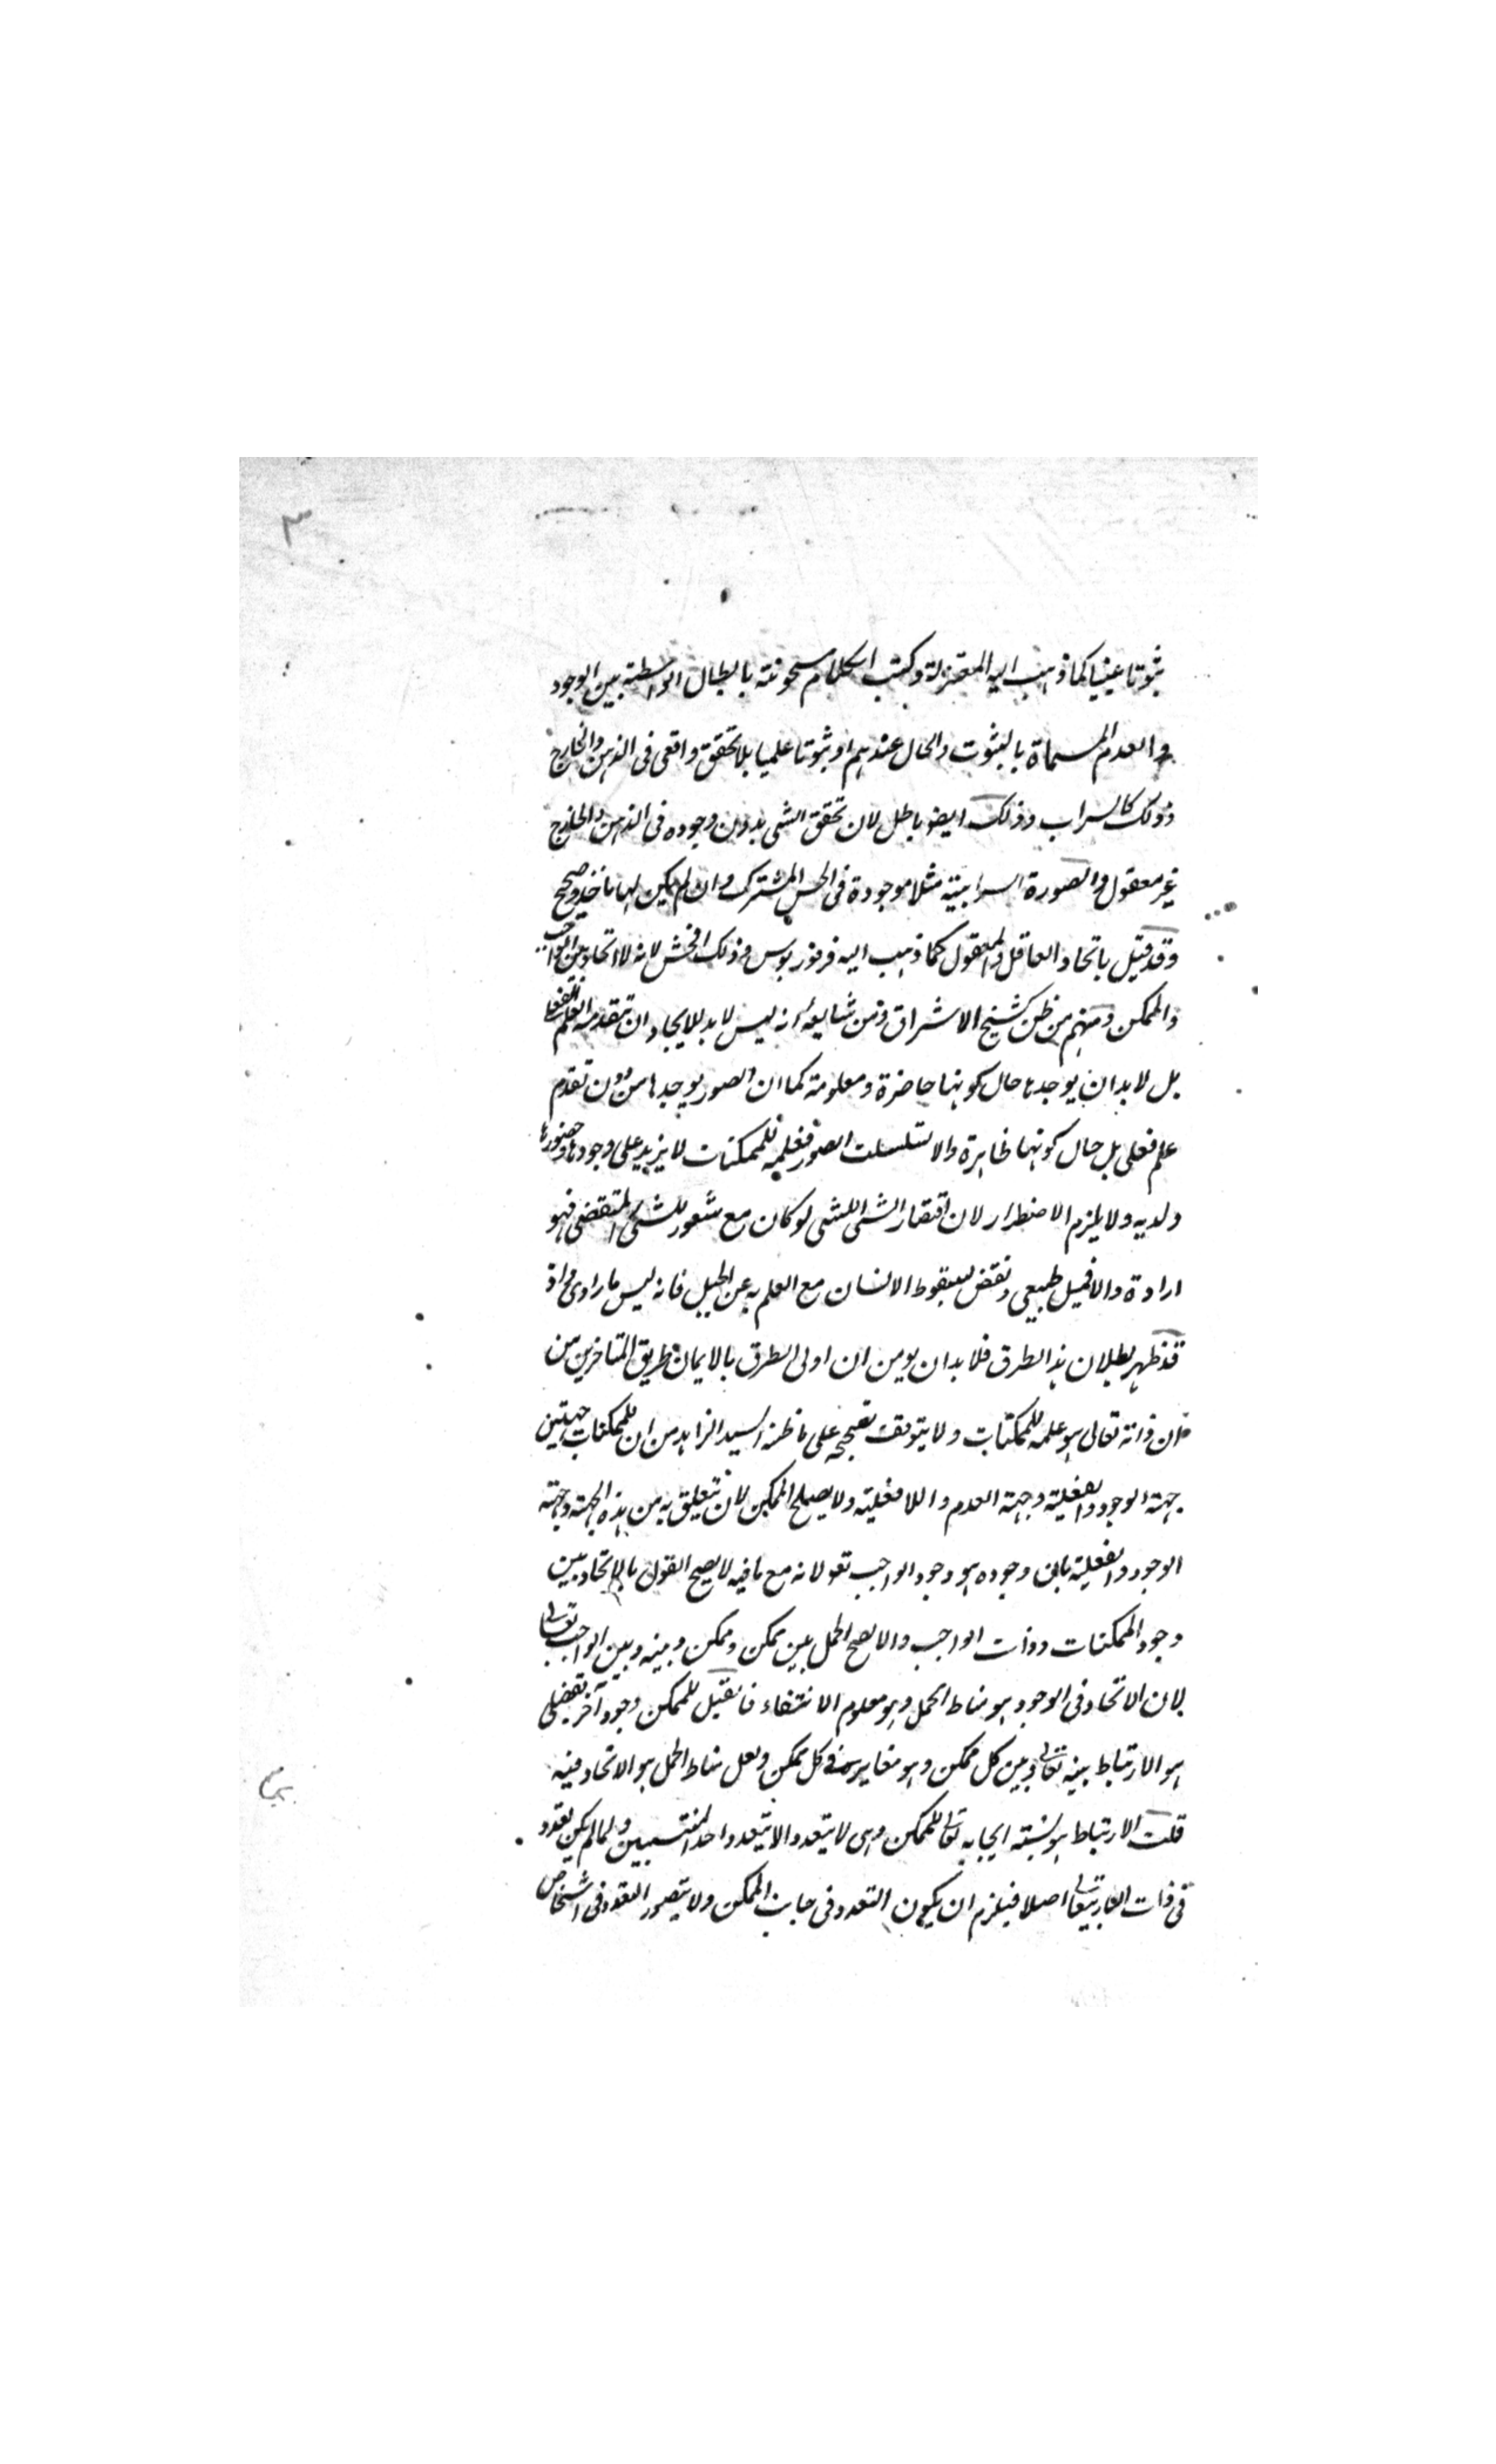 ٣
ثبوتا عينيا كما ذهب اليه المعتزلة وكتب الكلام مسحونته بابطال الواسطة بين الوجود
والعدم المسماة بالثبوت والحال عندهم او ثبوتا علميا بلا تحقق واقعى فى الذهن والخارج
وذلك كالسراب وذلك ايضو باطل لان تحقق الشى بدون وجوده فى الذهن والخارج
غير معقول والصورة السرابية مثلا موجودة فى الحس المشترك وان لم يكن لها ماخذ صحيح
وقد قيل باتحاد العاقل والمعقول كما ذهب اليه فرفوريوس وذلك افحش لانه لا اتحاد بين الواجب
والممكن ومنهم من ظن كشيخ الاشراق ومن شايعه انه ليس لا بد للايجاد ان تتقدمه العلم الفعلى
بل لا بد ان يوجدها حال كونها حاضرة ومعلومة كما ان الصور يوجدها من دون تقدم
علم فعلى بل حال كونها ظاهرة والا تسلسلت الصور فعلمه للممكنات لا يزيد على وجودها وحضورها
ولديه ولا يلزم الاضطرار لان اقتضار الشى للشى لو كان مع شعور للشى المقتضى فهو
ارادة والا فميل طبيعى ونقض بسقوط الانسان مع العلم به عن الجبل فانه ليس بارادى واذ
قد ظهر بطلان هذه الطرق فلا بد ان يومن ان اولى الطرق بالايمان طريق المتاخرين من
ان ذاته تعالى هو علمه للممكنات ولا يتوقف تصحيحه على ما ظنه السيد الزاهد من ان للممكنات جهتين
جهة الوجود والفعلية وجهة العدم واللافعلية ولا يصلح الممكن لان يتعلق به من هذه الجهة وجهة
الوجود والفعلية بان وجوده هو وجود الواجب تعو لانه مع ما فيه لا يصح القول بالاتحاد بين
وجود الممكنات وذات الواجب والا لصح الحمل بين ممكن وممكن وبينه وبين الواجب تعالى
لان الاتحاد فى الوجود هو مناط الحمل وهو معلوم الانتفاء فان قيل للممكن وجود آخر تفصيلى
هو الارتباط بينه تعالى وبين كل ممكن وهو متغاير فى كل ممكن ولعل مناط الحمل هو الاتحاد فيه
قلت الارتباط هو نسبة ايجابه تعالى للممكن وهى لا يتعدد الا بتعدد احد المنتسبين ولما لم يكن تعدد
فى ذات البارى تعالى اصلا فيلزم ان يكون التعدد فى جانب الممكن ولا يتصور التعدد فى اشخاص